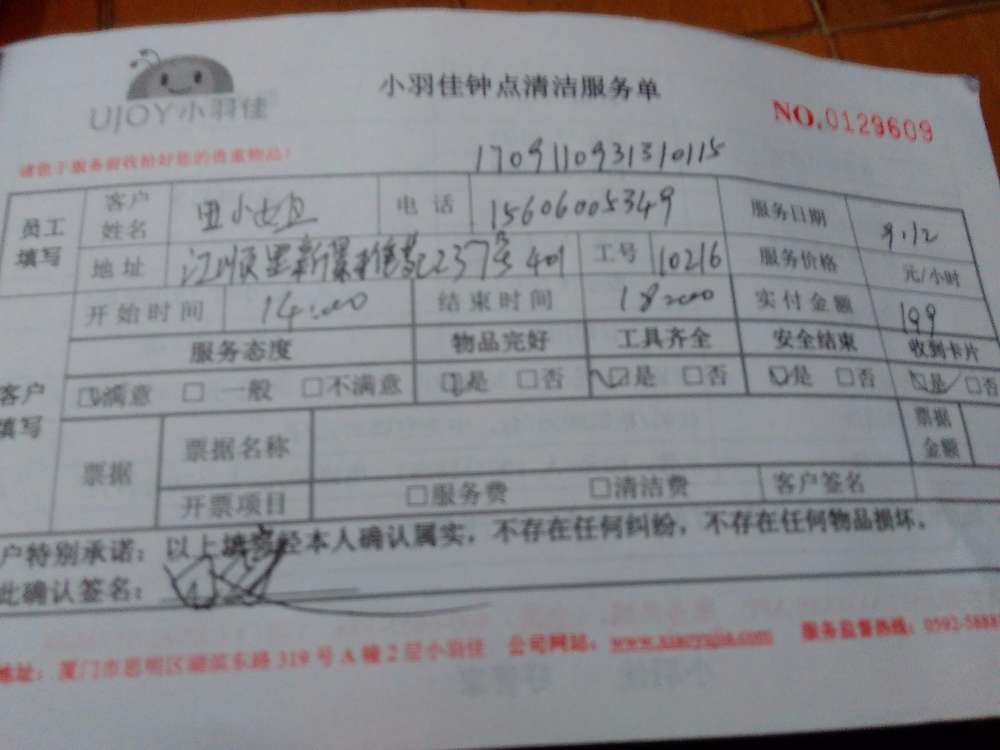 UJOY小羽佳
小羽佳钟点清洁服务单
NO.0129609
请您于服务前收拾好您的贵重物品!
1709110931310115
员工填写 客户姓名 田小姐 电话 15606005349 服务日期 9.12
地址 237号401 工号 10216 服务价格 元/小时
开始时间 14:00 结束时间 18:00 实付金额 199
服务态度 物品完好 工具齐全 安全结束 收到卡片
客户填写 ☑满意 □一般 □不满意 ☑是 □否 ☑是 □否 ☑是 □否 ☑是 □否
票据 票据名称 票据金额
开票项目 □服务费 □清洁费 客户签名
户特别承诺:以上填写经本人确认属实,不存在任何纠纷,不存在任何物品损坏。
此确认签名:
地址:厦门市思明区湖滨东路319号A幢2层小羽佳 公司网站:www.xiaoyujia.com 服务监督热线:0592-5888